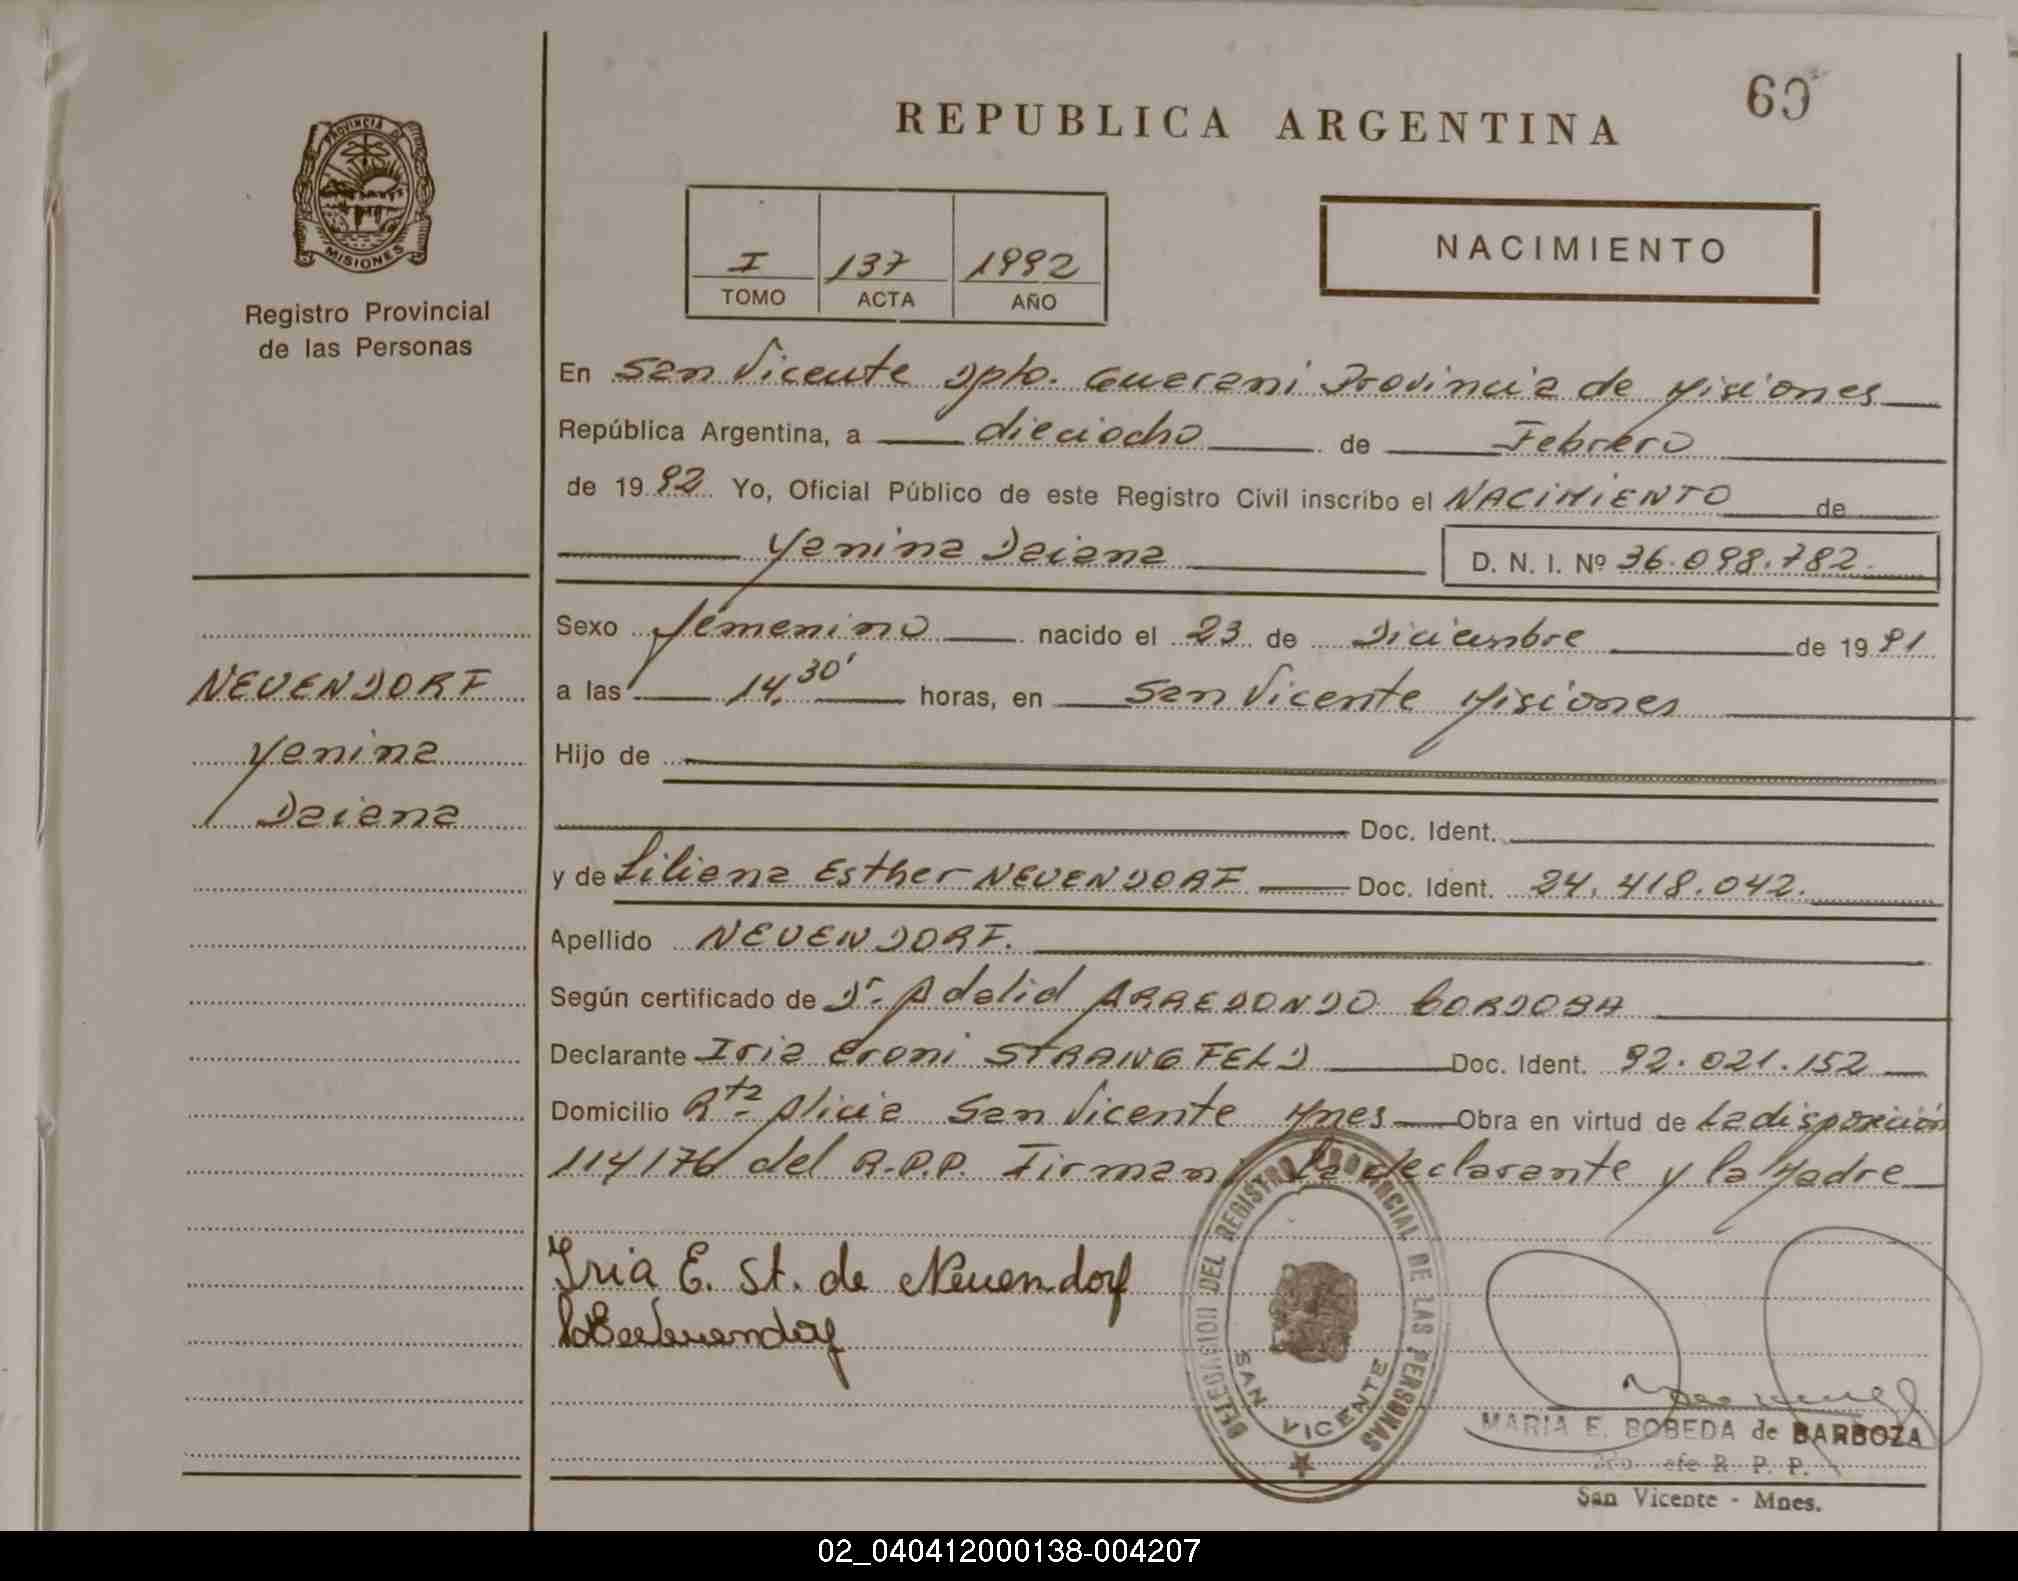 60
REPUBLICA ARGENTINA
PROVINCIA DE
MISIONES
Registro Provincial
de las Personas
I 137 1992
TOMO ACTA AÑO
NACIMIENTO
En San Vicente Dpto. Guarani Provincia de Misiones
República Argentina, a dieciocho de Febrero
de 1992 Yo, Oficial Público de este Registro Civil inscribo el NACIMIENTO de
Yanina Daiana D. N. I. Nº 36.098.782.
Sexo femenino nacido el 23 de Diciembre de 1991
a las 14.30' horas, en San Vicente Misiones
Hijo de
Doc. Ident.
y de Liliana Esther NEUENDORF Doc. Ident. 24.418.042.
Apellido NEUENDORF.
Según certificado de Dr. Adalid ARREDONDO CORDOBA
Declarante Iria Eroni STRANGFELD Doc. Ident. 92.021.152
Domicilio Rta- Alicia San Vicente Mnes Obra en virtud de La disposición
114/76 del R.P.P. Firman la declarante y la Madre
NEUENDORF
Yanina
Daiana
Iria E. St. de Neuendorf
DELEGACION DEL REGISTRO PROVINCIAL DE LAS PERSONAS
SAN VICENTE
MARIA E. BOBEDA de BARBOZA
R. P. P.
San Vicente - Mnes.
02_040412000138-004207